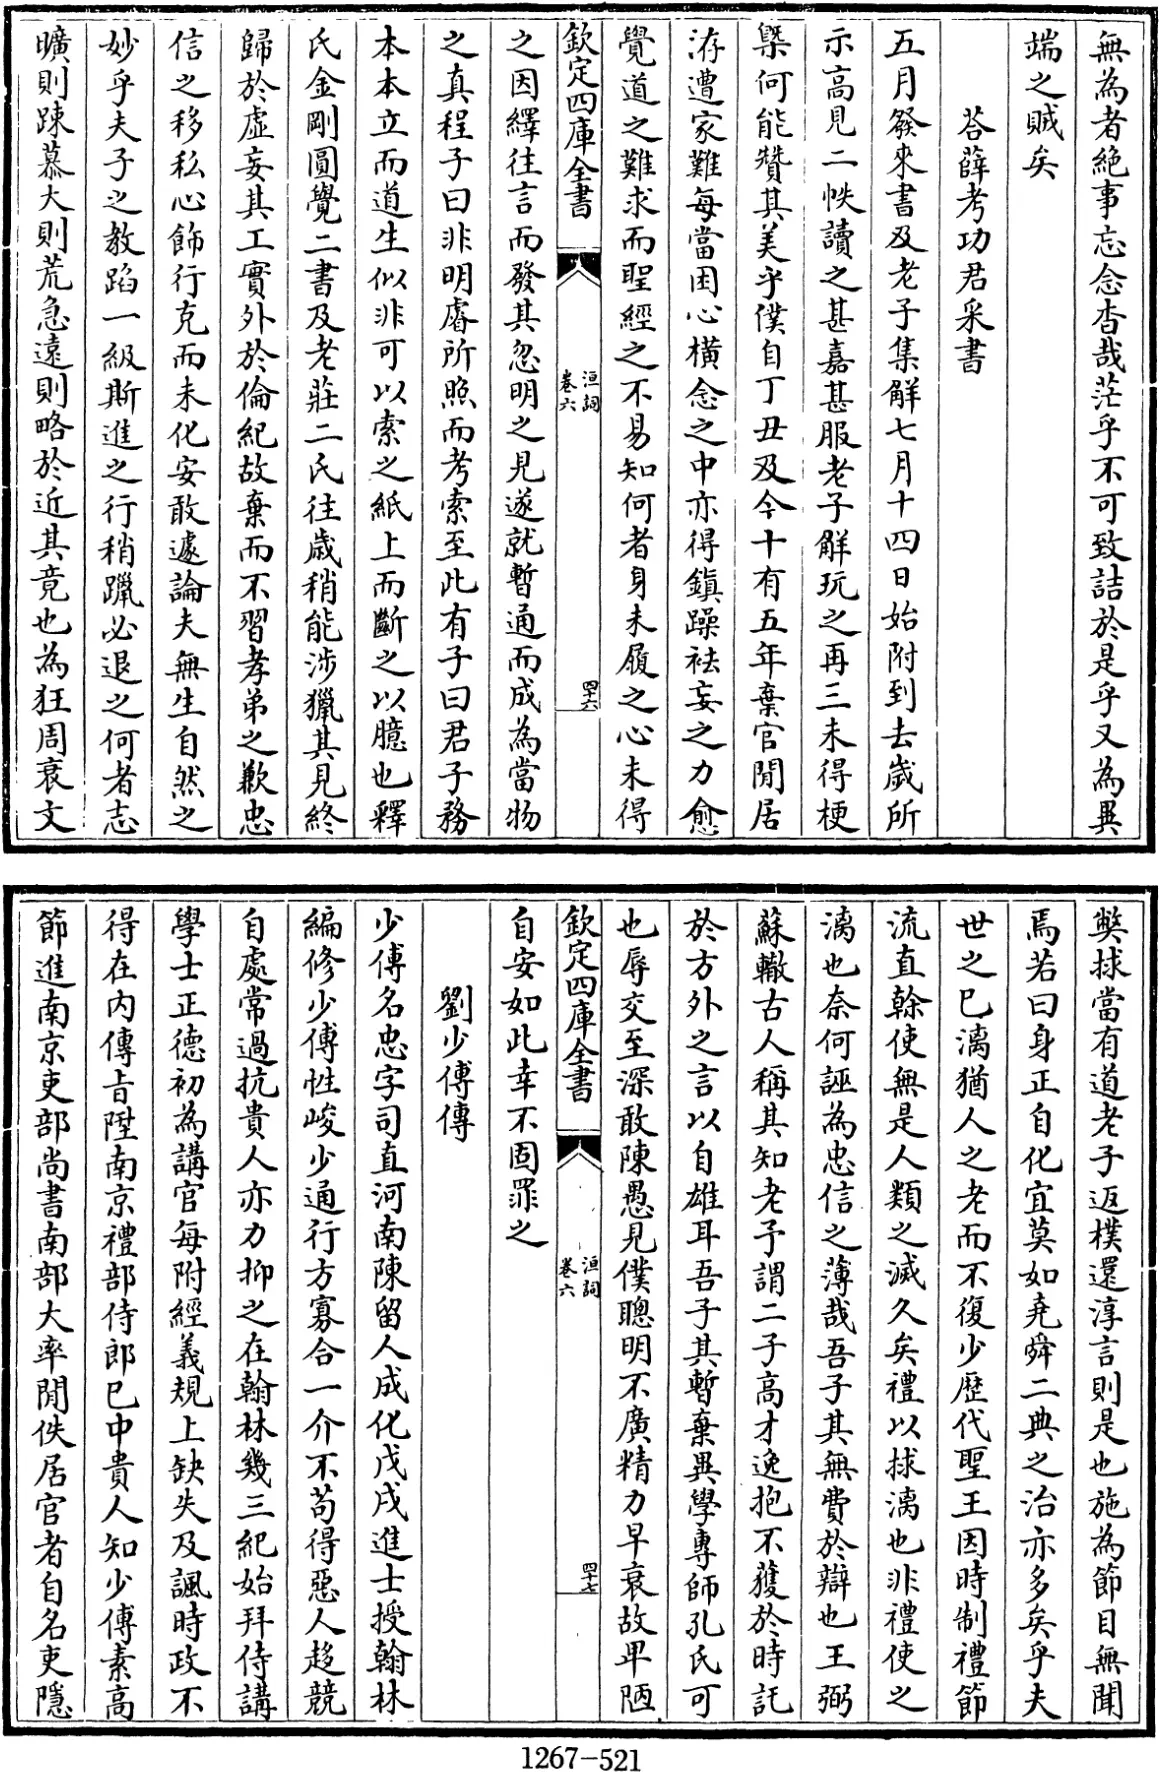 無為者絶事忘念杳哉茫乎不可致詰於是乎又為異
端之賊矣
荅薛考功君采書
五月發來書及老子集解七月十四日始附到去歲所
示高見二帙讀之甚嘉甚服老子解玩之再三未得梗
槩何能贊其美乎僕自丁丑及今十有五年棄官閒居
洊遭家難每當困心橫念之中亦得鎮躁袪妄之力愈
覺道之難求而聖經之不易知何者身未履之心未得
欽定四庫全書
洹詞
卷六
四十六
之因繹往言而發其忽明之見遂就暫通而成為當物
之真程子曰非明睿所照而考索至此有子曰君子務
本本立而道生似非可以索之紙上而斷之以臆也釋
氏金剛圓覺二書及老莊二氏往歲稍能涉獵其見終
歸於虛妄其工實外於倫紀故棄而不習孝弟之歉忠
信之移私心飾行克而未化安敢遽論夫無生自然之
妙乎夫子之教蹈一級斯進之行稍躐必退之何者志
曠則踈慕大則荒急遠則略於近其竟也為狂周衰文
獘捄當有道老子返樸還淳言則是也施為節目無聞
焉若曰身正自化宜莫如堯舜二典之治亦多矣乎夫
世之已漓猶人之老而不復少歴代聖王因時制禮節
流直榦使無是人類之滅久矣禮以捄漓也非禮使之
漓也奈何誣為忠信之薄哉吾子其無費於辯也王弼
蘇轍古人稱其知老予謂二子高才逸抱不獲於時託
於方外之言以自雄耳吾子其暫棄異學專師孔氏可
也辱交至深敢陳愚見僕聰明不廣精力早衰故卑陋
欽定四庫全書
洹詞
卷六
四十七
自安如此幸不固罪之
劉少傅傳
少傅名忠字司直河南陳留人成化戊戌進士授翰林
編修少傅性峻少通行方寡合一介不苟得惡人趍競
自處常過抗貴人亦力抑之在翰林幾三紀始拜侍講
學士正德初為講官每附經義規上缺失及諷時政不
得在內傳旨陞南京禮部侍郎已中貴人知少傅素高
節進南京吏部尚書南部大率閒佚居官者自名吏隱
1267-521